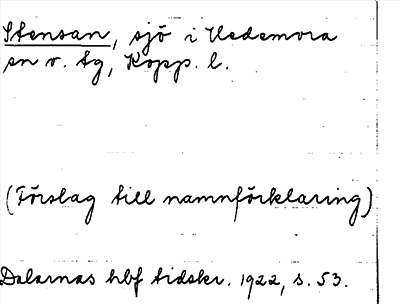 Stensan, sjö i Hedemora
sn v. tg, Kopp. l.
(Förslag till namnförklaring)
Dalarnas hbf tidskr. 1922, s. 53.